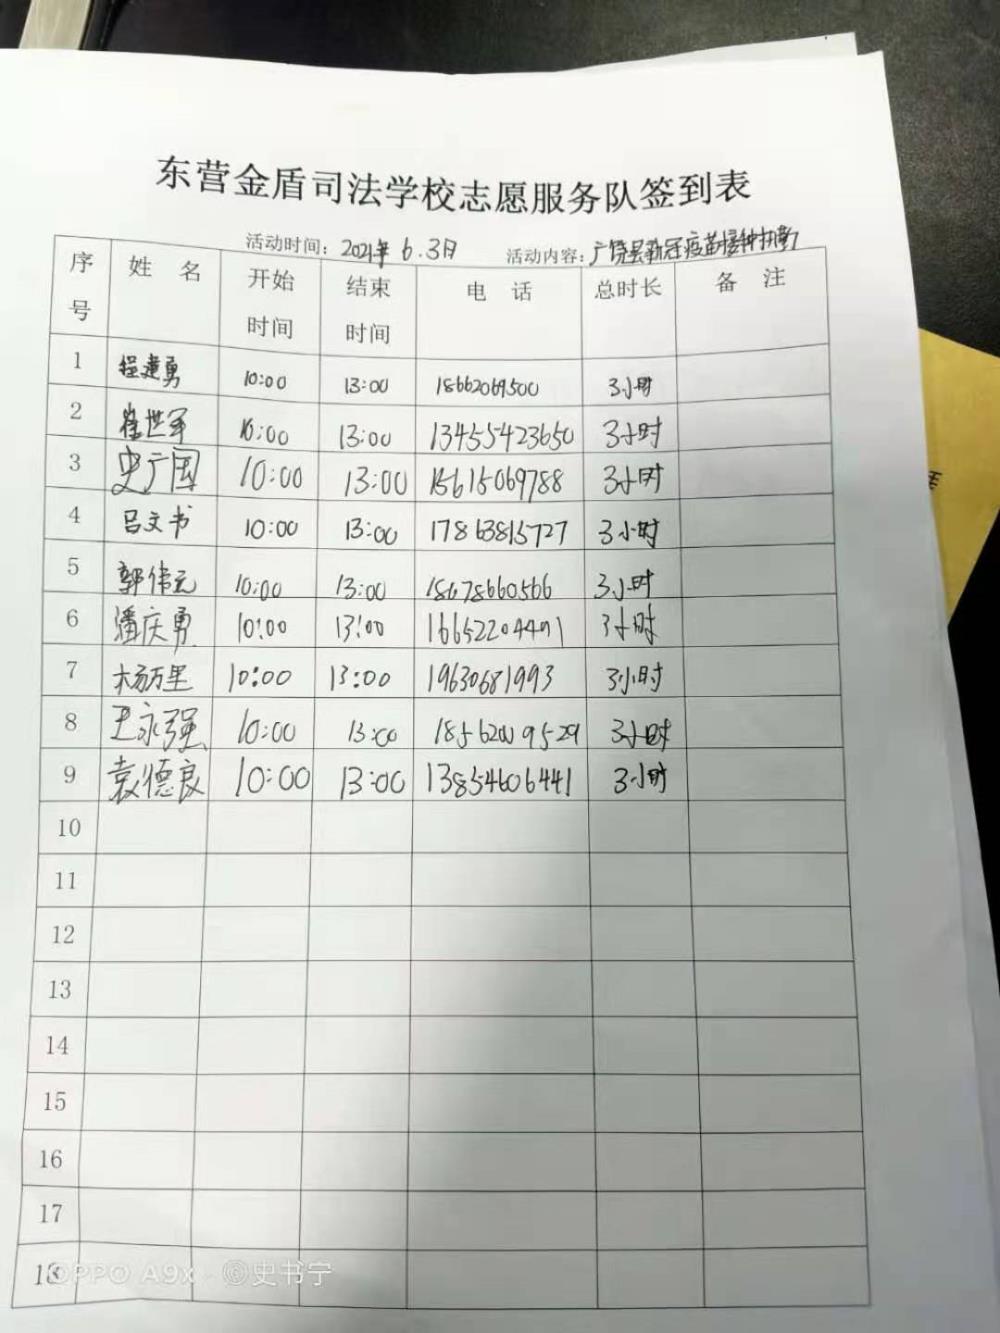 东营金盾司法学校志愿服务队签到表
活动时间：2021年 6.3日 活动内容：广饶县新冠疫苗接种执勤
序号 姓名 开始时间 结束时间 电话 总时长 备注
1 程建勇 10:00 13:00 18662069500 3小时
2 崔世军 10:00 13:00 13455423650 3小时
3 史广国 10:00 13:00 15615069788 3小时
4 吕文书 10:00 13:00 17863815727 3小时
5 郭伟元 10:00 13:00 18678660566 3小时
6 潘庆勇 10:00 13:00 16652204491 3小时
7 杨万里 10:00 13:00 19630681993 3小时
8 王永强 10:00 13:00 18562009529 3小时
9 袁德良 10:00 13:00 13854606441 3小时
10
11
12
13
14
15
16
17
18
OPPO A9x · ©史书宁